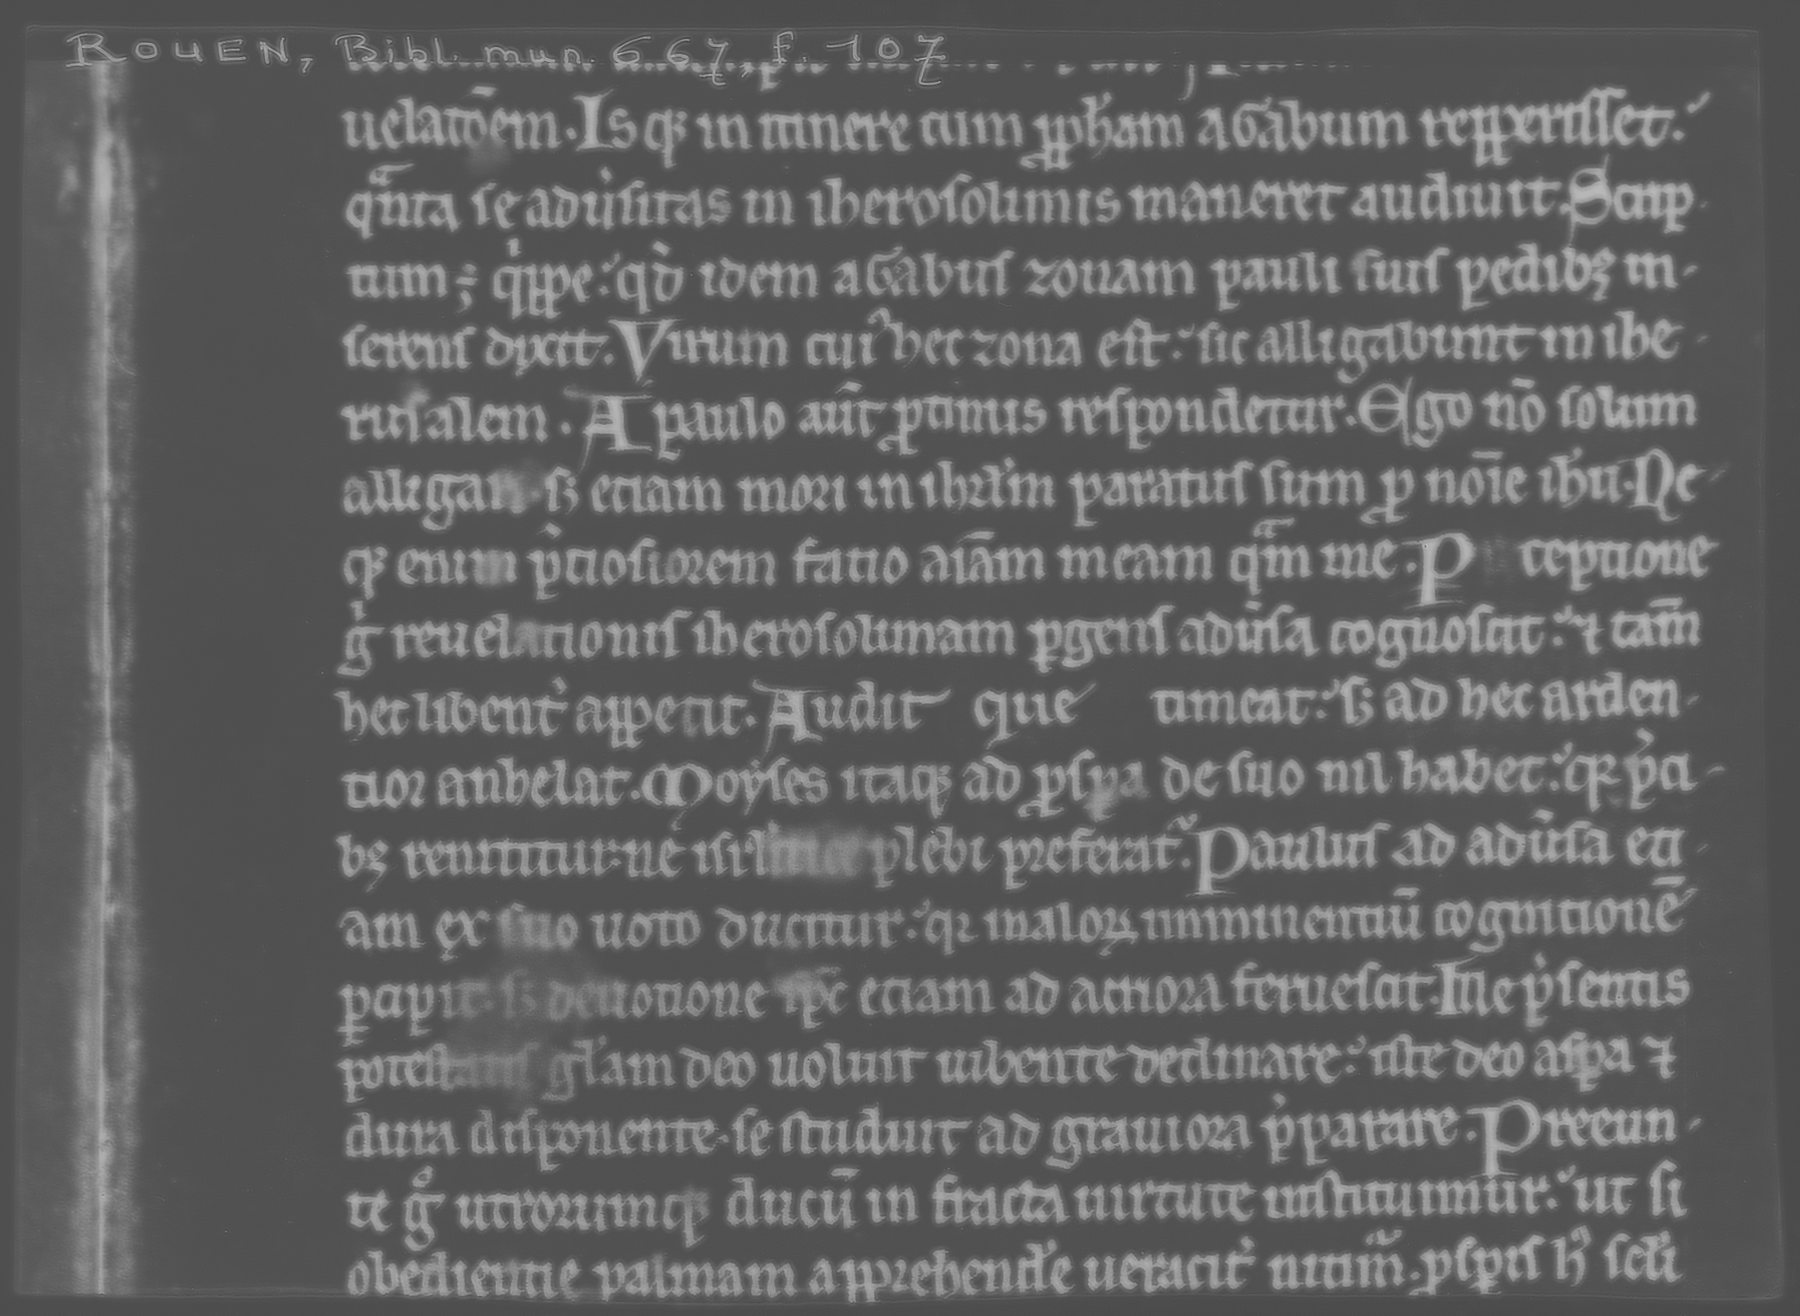 ROUEN, Bibl. mun. 667, f. 107
uelatōem. Is qꝫ in itinere cum ꝓph̃am agabum repperisset.
qᵃnta se adūsitas in iherosolimis maneret audiuit. Scrip
tum ÷ qͥppe. qđ idem agabus zonam pauli suis pedibꝫ in-
serens dixit. Virum cuiꝰ hec zona est. sic alligabunt in ihe
rusalem. A paulo aūt ꝓtinus respondetur. Ego nō solum
alligari sꝫ etiam mori in ihrlm̄ paratus sum ꝓ noīe ih̄u. Ne
qꝫ enim p̄ciosiorem facio aīam meam qᵃm me. P ceptione
gͥ reuelationis iherosolimam ꝑgens adūsa cognoscit. ⁊ tam̄
hec libent̉ appetit. Audit que timeat. sꝫ ad hec arden-
tior anhelat. Moyses itaqꝫ ad ꝓspa de suo nil habet. qꝛ p̄ci-
bꝫ renititur ne isrl plebi preferat᷑. Paulus ad adūsa eti-
am ex suo uoto ducitur. qꝛ maloꝝ imminentiū cognitionē
ꝑcipit. sꝫ deuotione ip̄e etiam ad acriora feruescit. Ille p̄sentis
potestatis gl̄am deo uoluit iubente declinare. iste deo aspa ⁊
dura disponente. se studuit ad grauiora p̄parare. Preeun-
te gͦ utrorumqꝫ ducū in fracta uirtute instituimur. ut si
obedientie palmam apprehend̄e ueracit̉ nitim᷑. ꝓspis hꝰ sc̄li